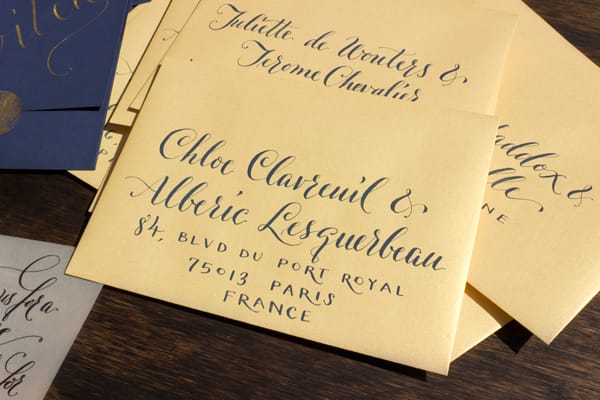 Juliette de Wouters &
Jerome Chevalier
Chloe Clavreuil &
Alberic Lesquerbeau
84, BLVD DU PORT ROYAL
75013 PARIS
FRANCE